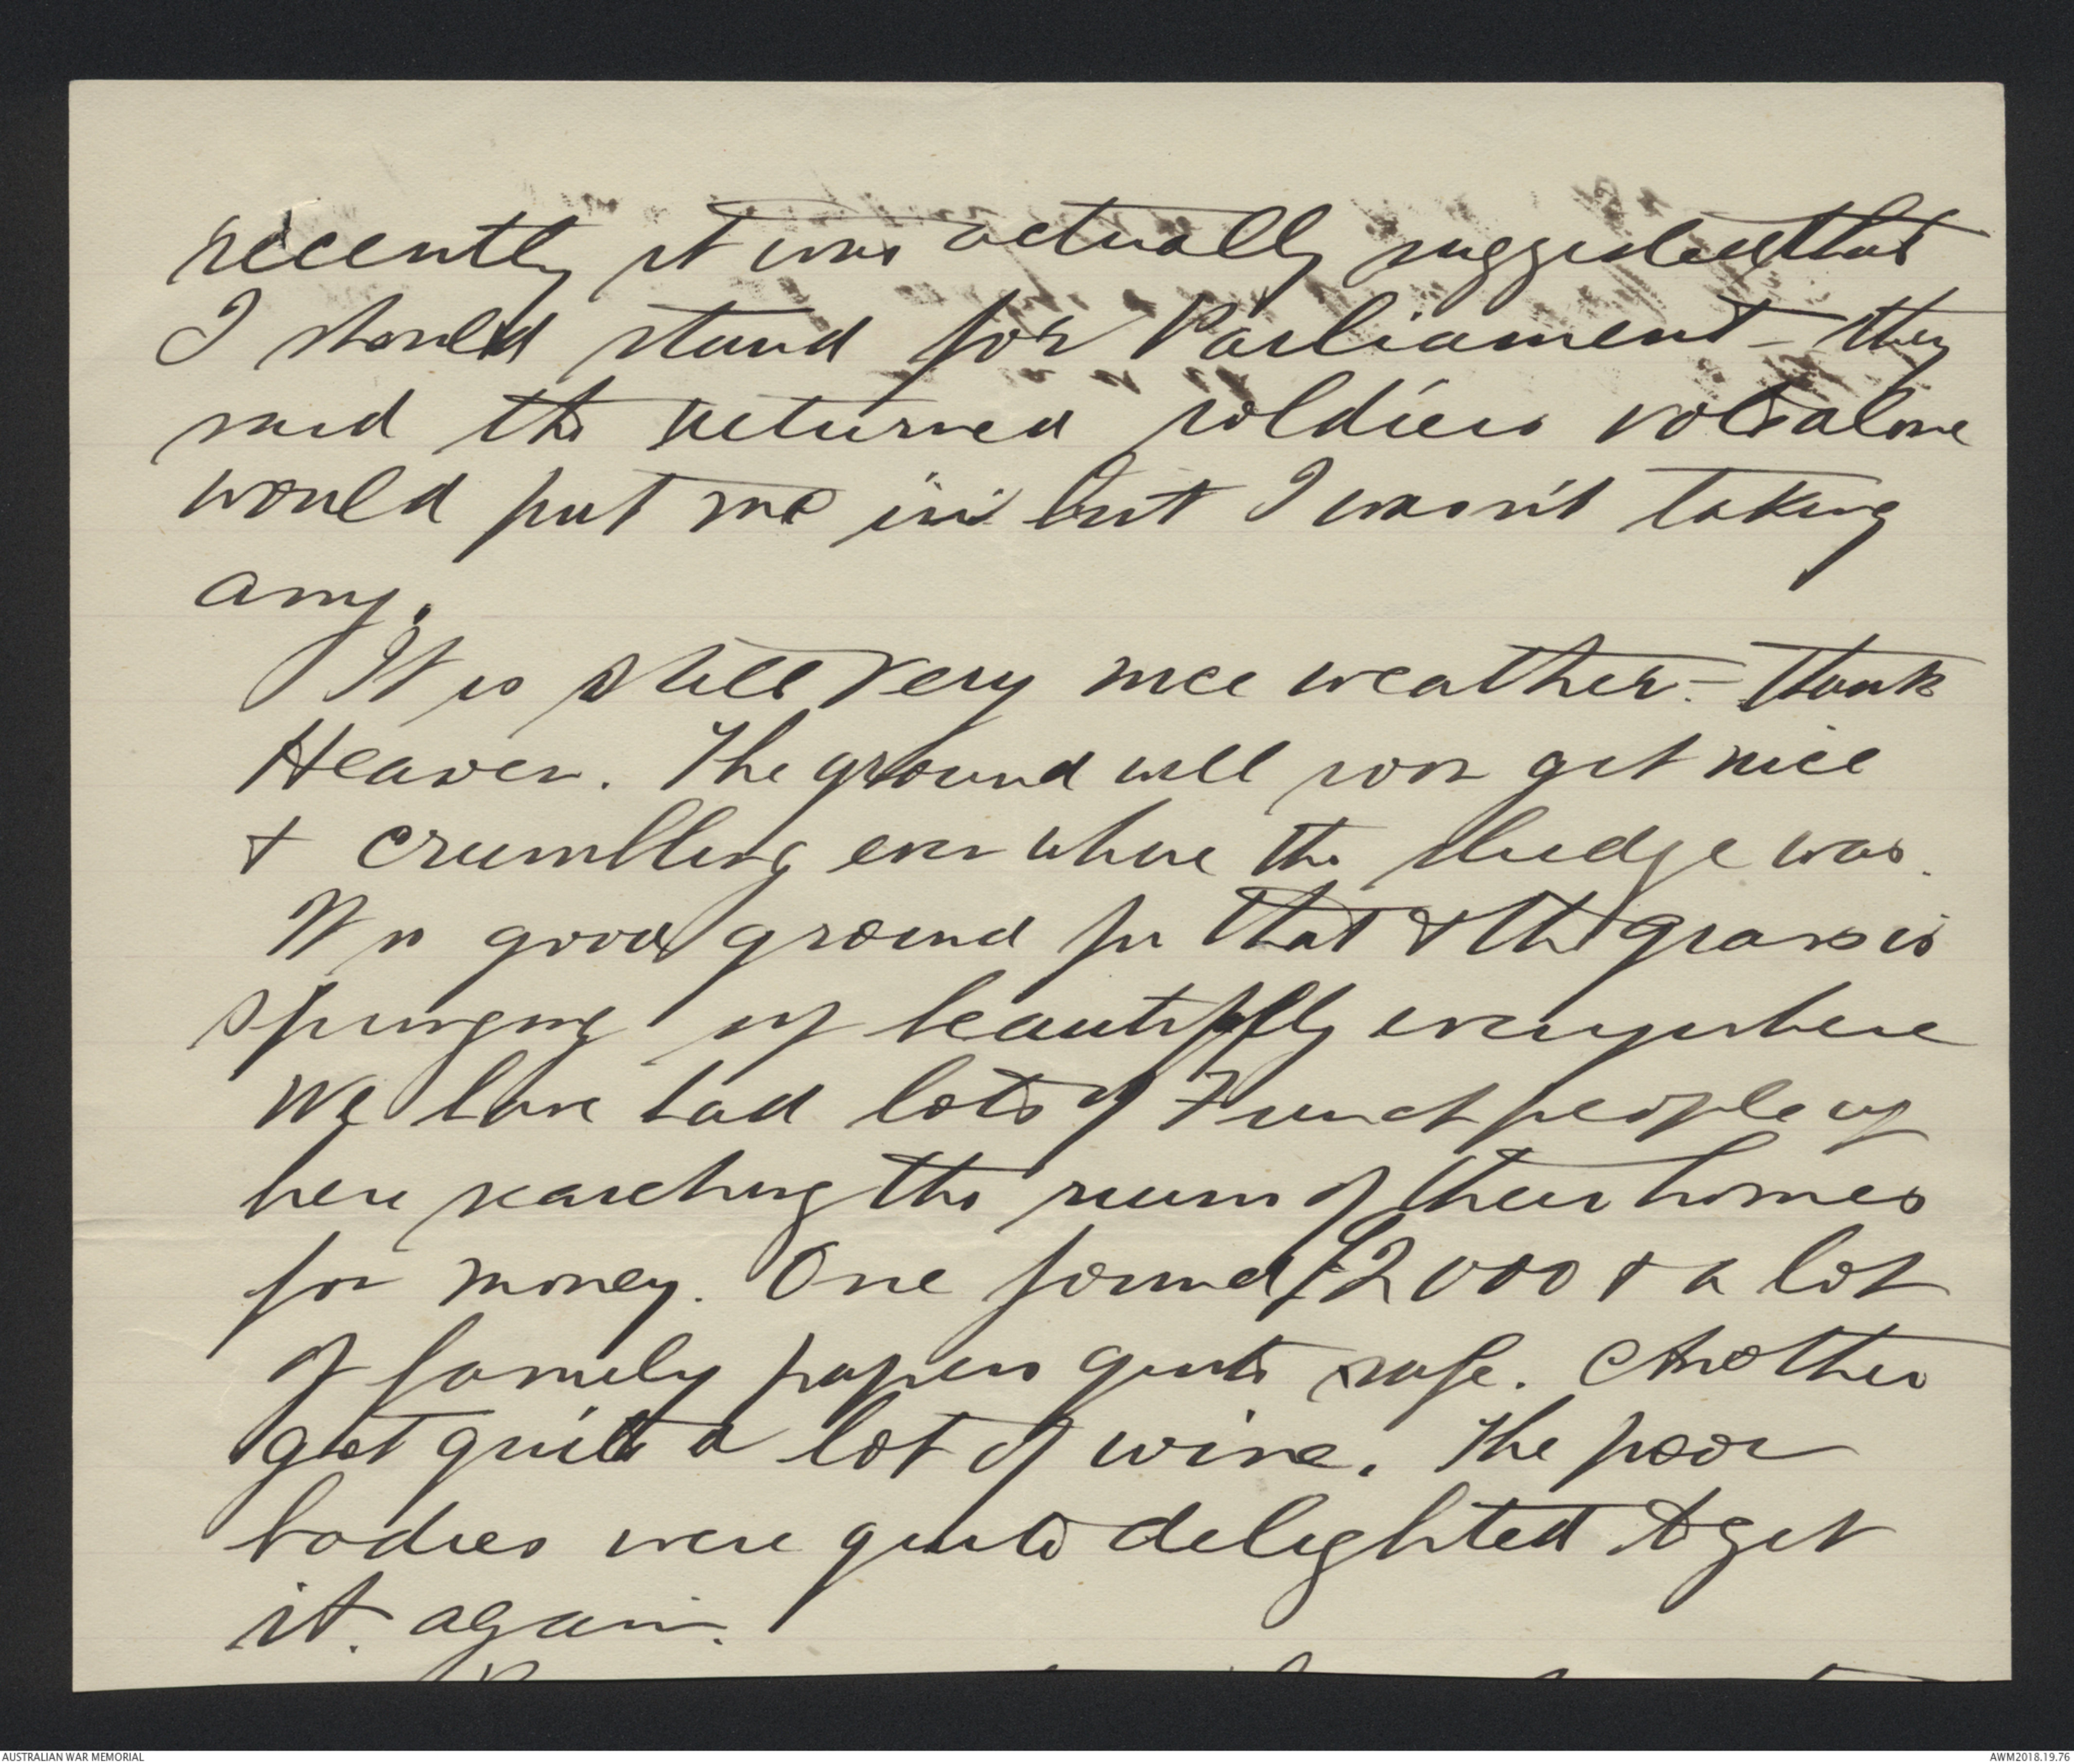 recently it was actually suggested that
I should stand for Parliament - they
said the returned soldiers vote alone
would put me in but I wasn't taking
any.
It is still very nice weather - thank
Heaven. The ground will soon get nice
& crumbling even where the sludge was.
It is good ground for that & the grass is
springing up beautifully everywhere
We have had lots of French people up
here searching the ruins of their homes
for money. One found £2000 & a lot
of family papers quite safe. Another
got quite a lot of wine. The poor
bodies were quite delighted to get
it again.
AUSTRALIAN WAR MEMORIAL
AWM2018.19.76